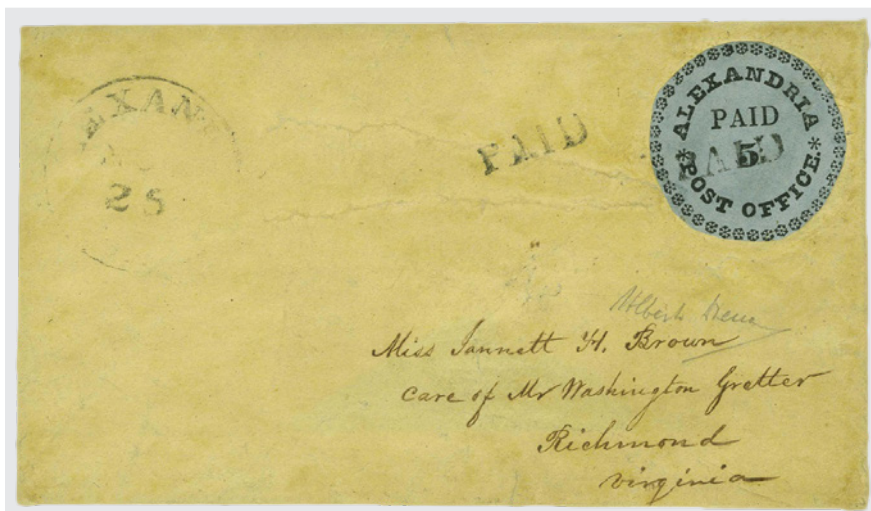 EXAN
25
PAID
* ALEXANDRIA *
PAID
5
PAID
POST OFFICE.
Miss Jannett H. Brown
care of Mr Washington Gretter
Richmond
virginia